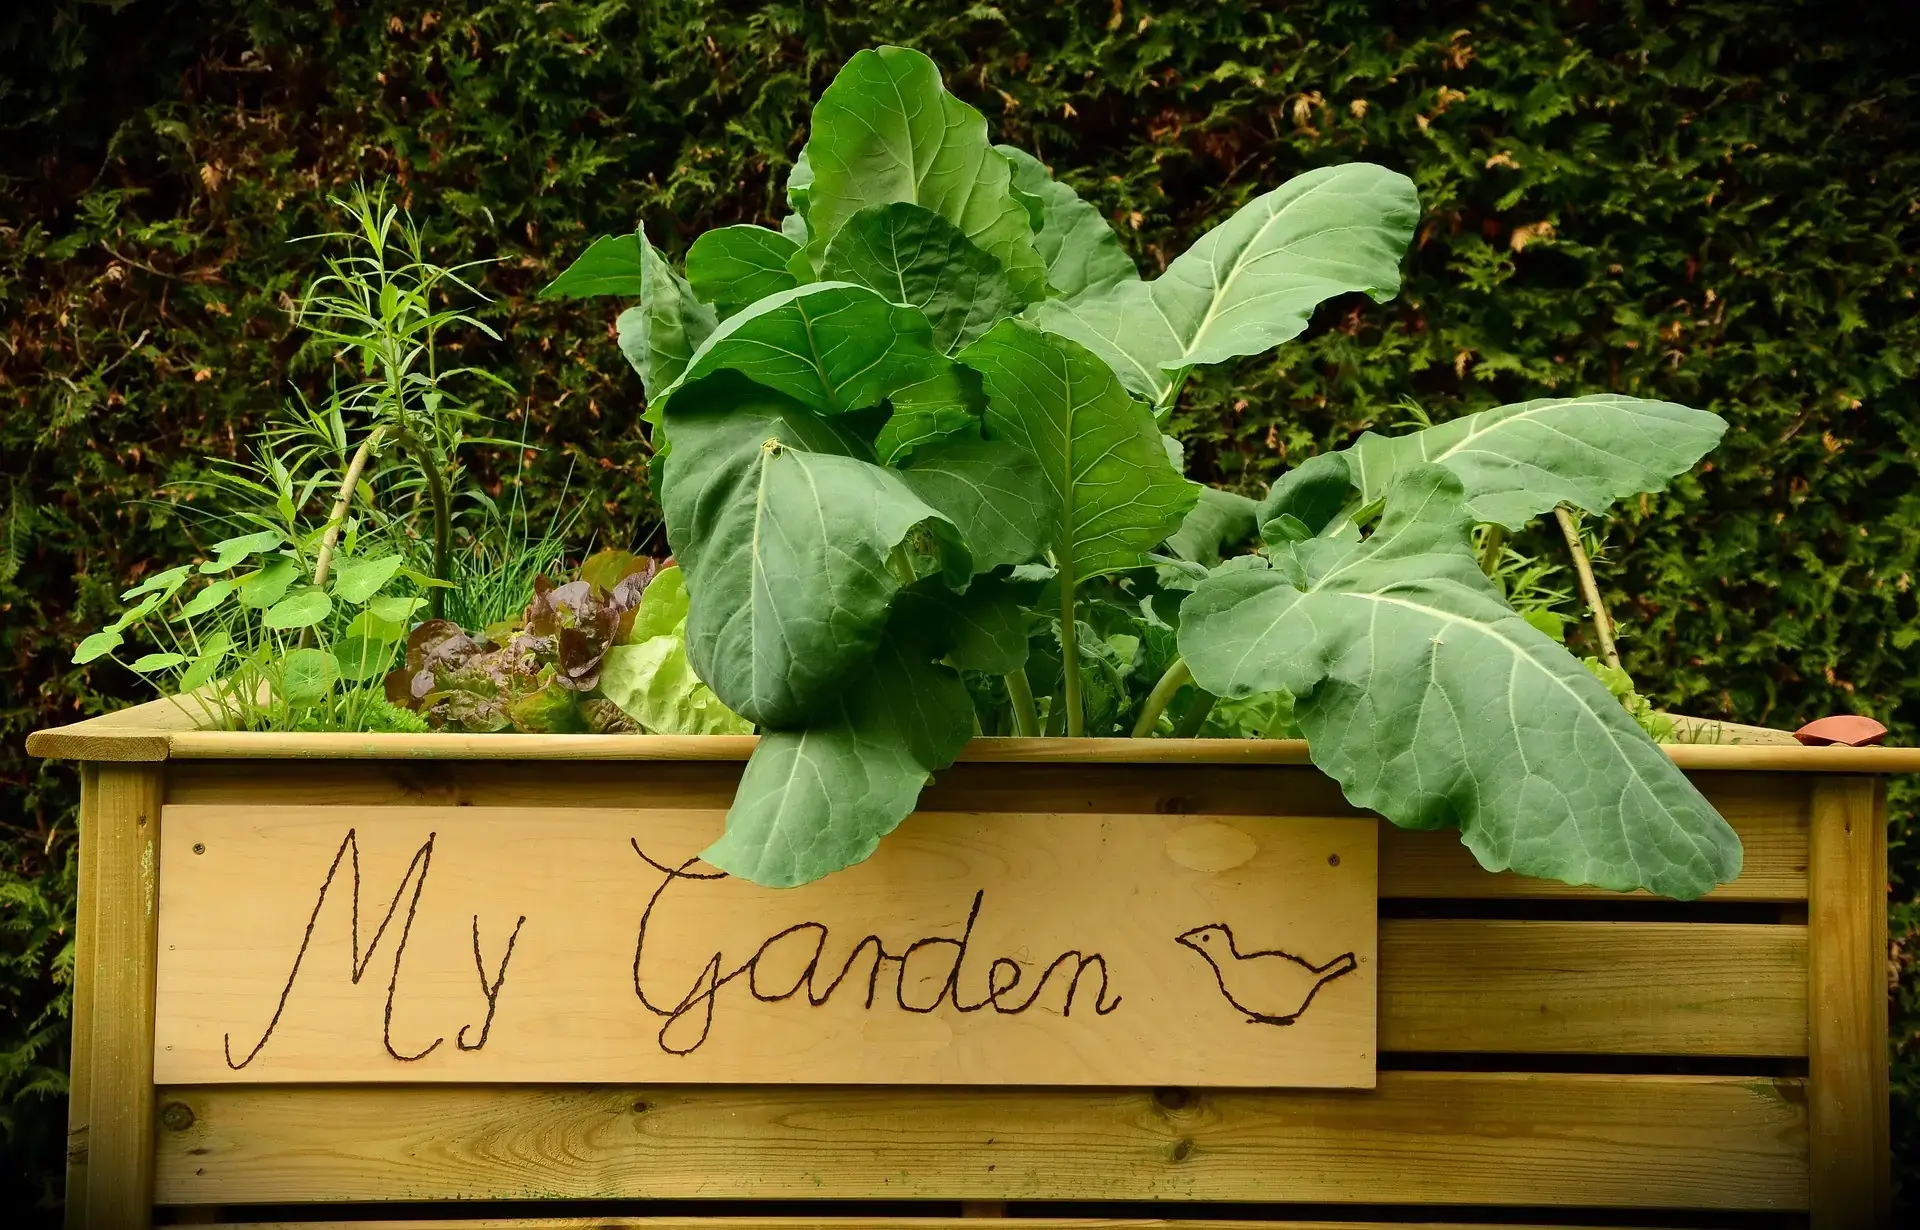 My Garden